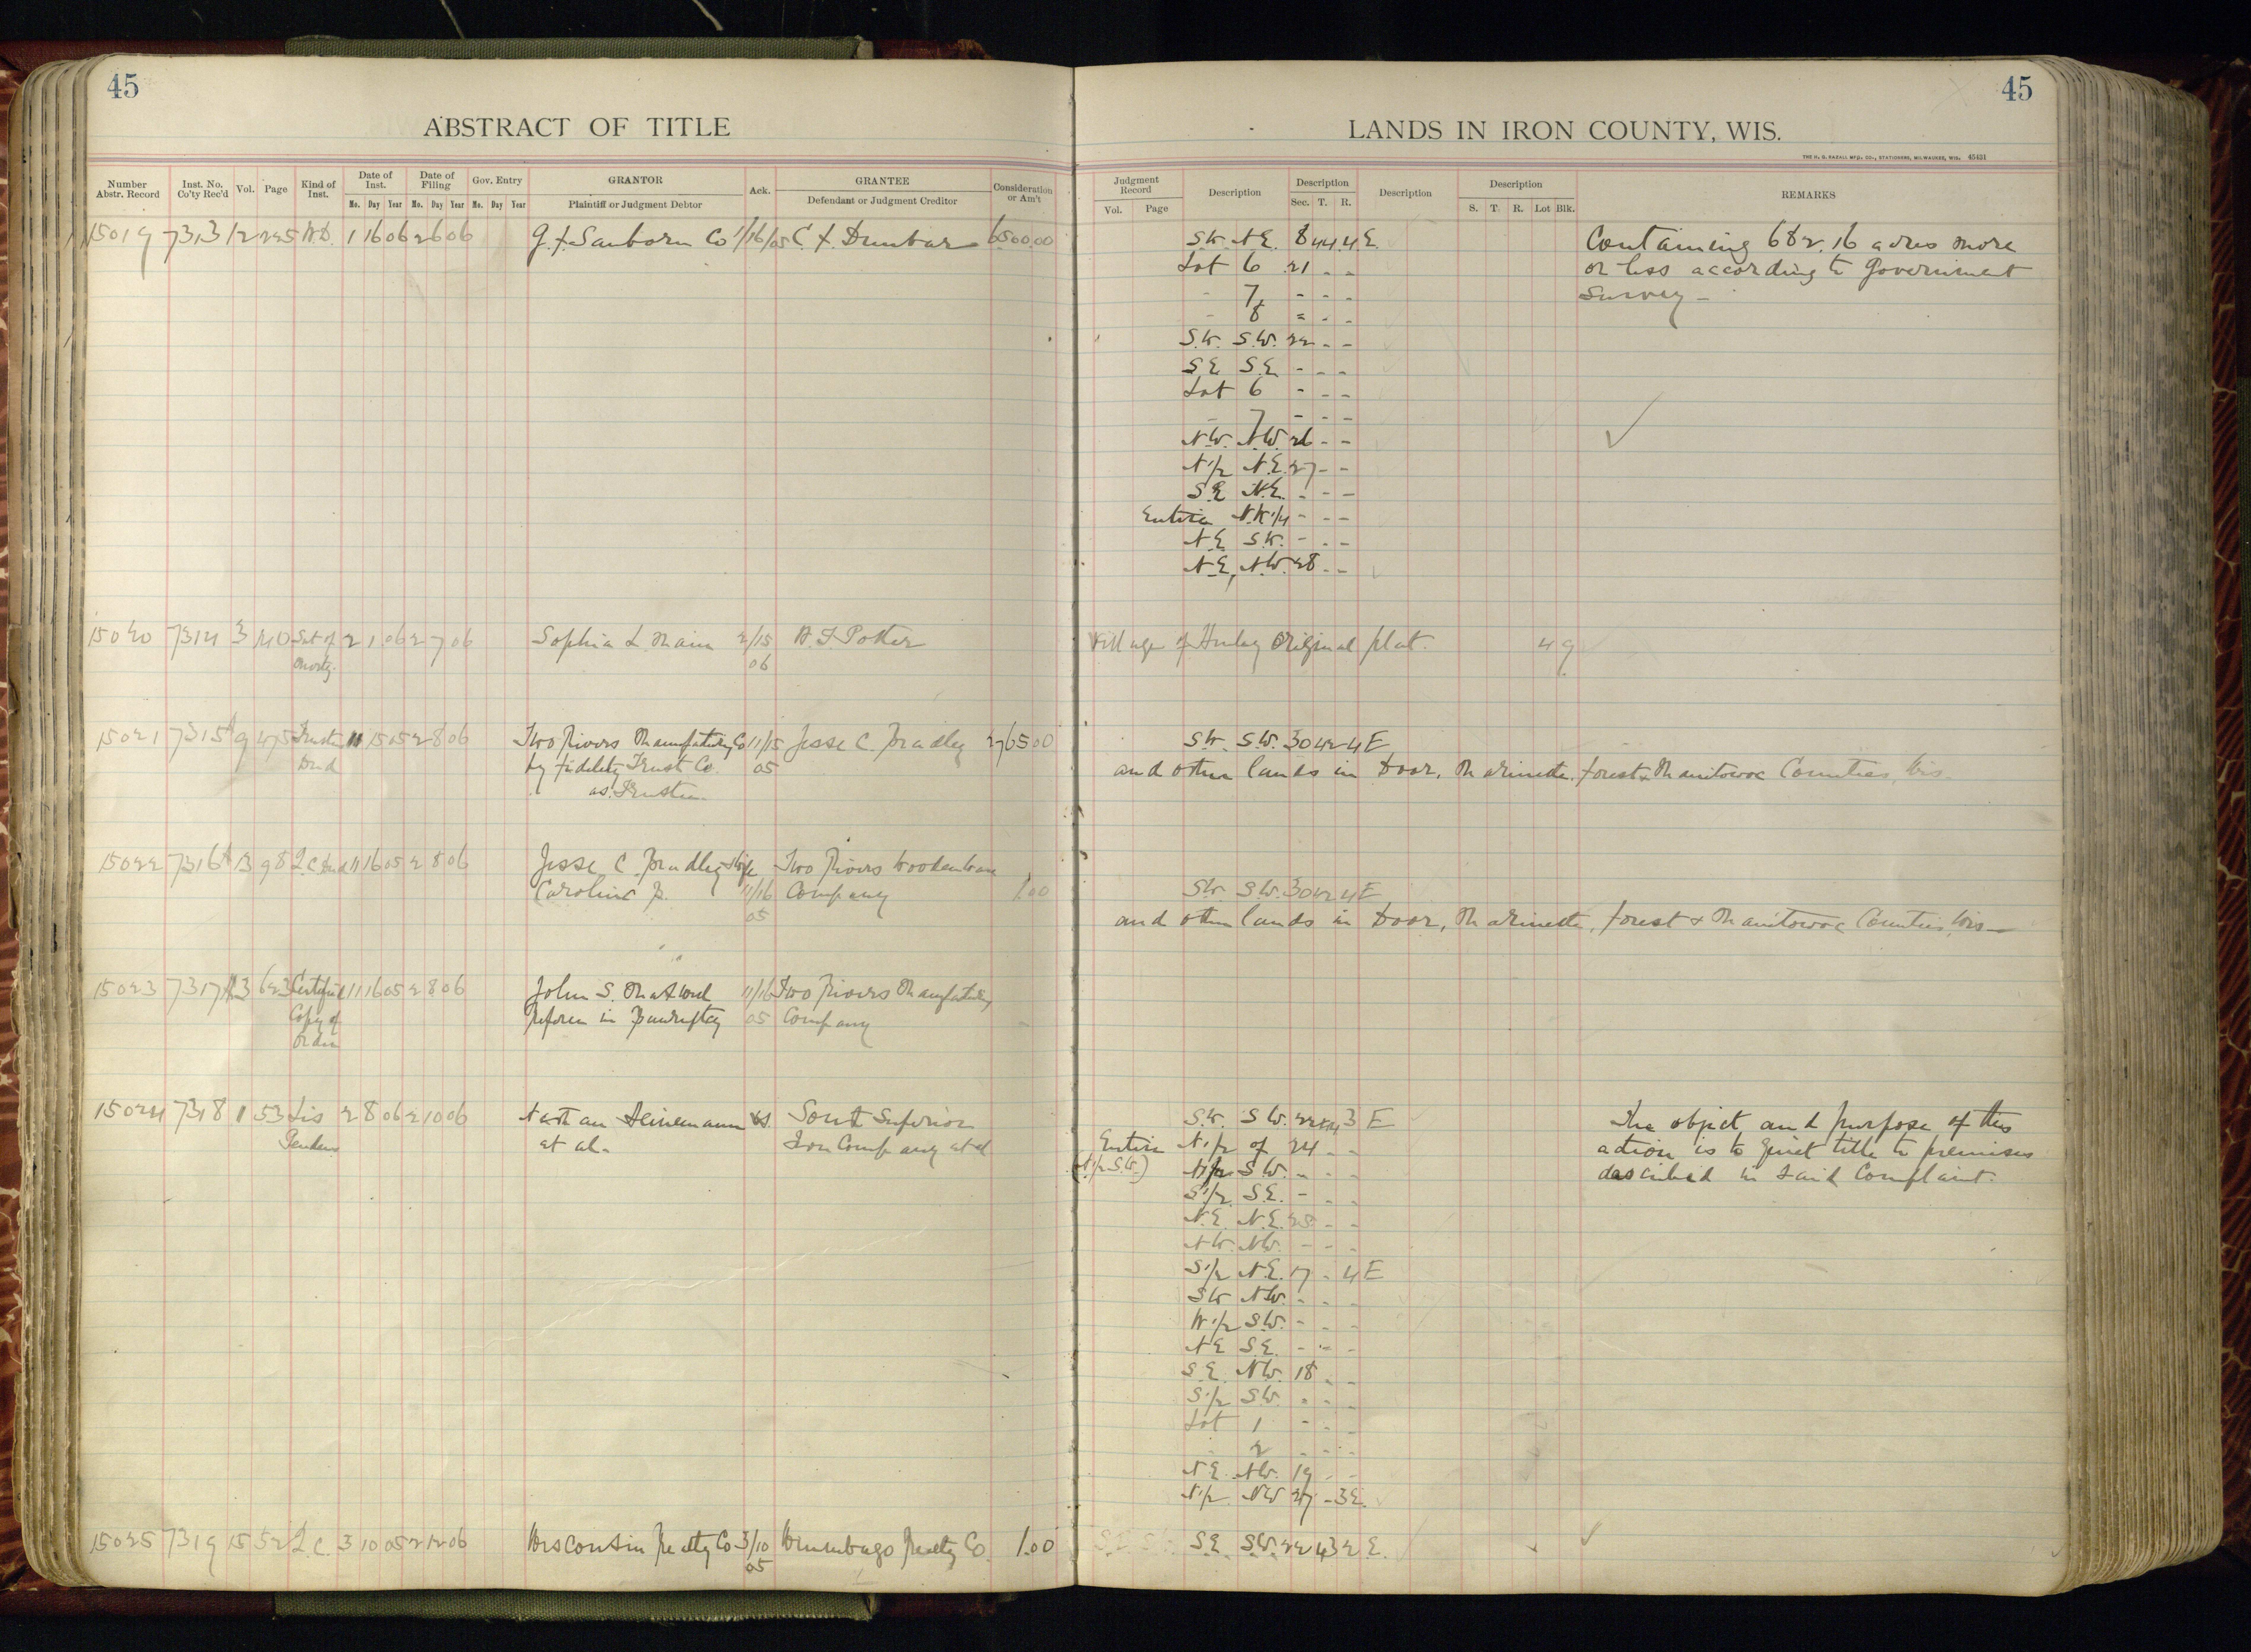 45
ABSTRACT OF TITLE
Number Abstr. Record
Inst. No. Co'ty Rec'd
Vol.
Page
Kind of Inst.
Date of Inst.
Mo. Day Year
Date of Filing
Mo. Day Year
Gov. Entry
Mo. Day Year
GRANTOR
Plaintiff or Judgment Debtor
Ack.
GRANTEE
Defendant or Judgment Creditor
Consideration or Am't
15019 7313 12 225 W.D. 1 16 06 2 6 06 G.F. Sanborn Co 1/16/05 C.F. Dunbar 6500.00
15020 7314 3 Sat of 2 1 06 2 7 06 Sophia L. Mann 2/15 W.S. Potter
Mortg. 06
15021 7315 9 475 Trustee 11 15 05 2 8 06 Two Rivers Manufacturing Co 11/15 Jesse C. Bradley 2765 00
Deed by Fidelity Trust Co. 05
as Trustee
15022 7316 13 98 Q.C. Deed 11 16 05 2 8 06 Jesse C. Bradley & Wife Two Rivers Woodenware
Caroline B. 11/16 Company 1.00
05
15023 7317 13 623 Certified 11 16 05 2 8 06 John S. 11/16 Two Rivers Manufacturing
Copy of Referee in Bankruptcy 05 Company
Order
15024 7318 1 53 Lis 2 8 06 2 10 06 Nathan Heinemann vs. South Superior
Pendens et al. Iron Company et al
15025 7319 15 52 Q.C. 3 10 05 2 12 06 Wisconsin Realty Co 3/10 Winnebago Realty Co. 1.00
05
45
LANDS IN IRON COUNTY, WIS.
THE H. G. RAZALL MFG. CO., STATIONERS, MILWAUKEE, WIS. 45421
Judgment Record
Vol. Page
Description
Description
Sec. T. R.
Description
Description
S. T. R. Lot Blk.
REMARKS
S.W. N.E. 8 44 4 E. Containing 682.16 acres more
Lot 6 21 - - or less according to Government
- 7 - - - Survey -
- 8 = - -
S.W. S.W. 22 - -
S.E. S.E. - - -
Lot 6 - - -
- 7 - - -
N.W. N.W. 26 - -
N1/2 N.E. 27 - -
S.E. N.E. - - -
Entire N.W.1/4 - - -
N.E. S.W. - - -
N.E. N.W. 28 - -
Village of Hurley Original plat. 4 9
S.W. S.W. 30 42 4 E
and other lands in Door, Marinette, Forest & Manitowoc Counties, Wis.
S.W. S.W. 30 42 4 E
and other lands in Door, Marinette, Forest & Manitowoc Counties, Wis -
S.W. S.W. 22 44 3 E The object and purpose of this
Entire N1/2 of 24 - - action is to quiet title to premises
(N1/2 S.W.) N1/2 S.W. - - - described in said Complaint.
S1/2 S.E. - - -
N.E. N.E. 25 - -
N.W. N.W. - - -
S1/2 N.E. 17 - 4 E
S.W. N.W. - - -
W1/2 S.W. - - -
N.E. S.E. - - -
S.E. N.W. 18 - -
S1/2 S.W. - - -
Lot 1 - - -
- 2 - - -
N.E. N.W. 19 - -
N1/2 N.W. 27 - 3 E.
S.E. S.W. 22 43 2 E.